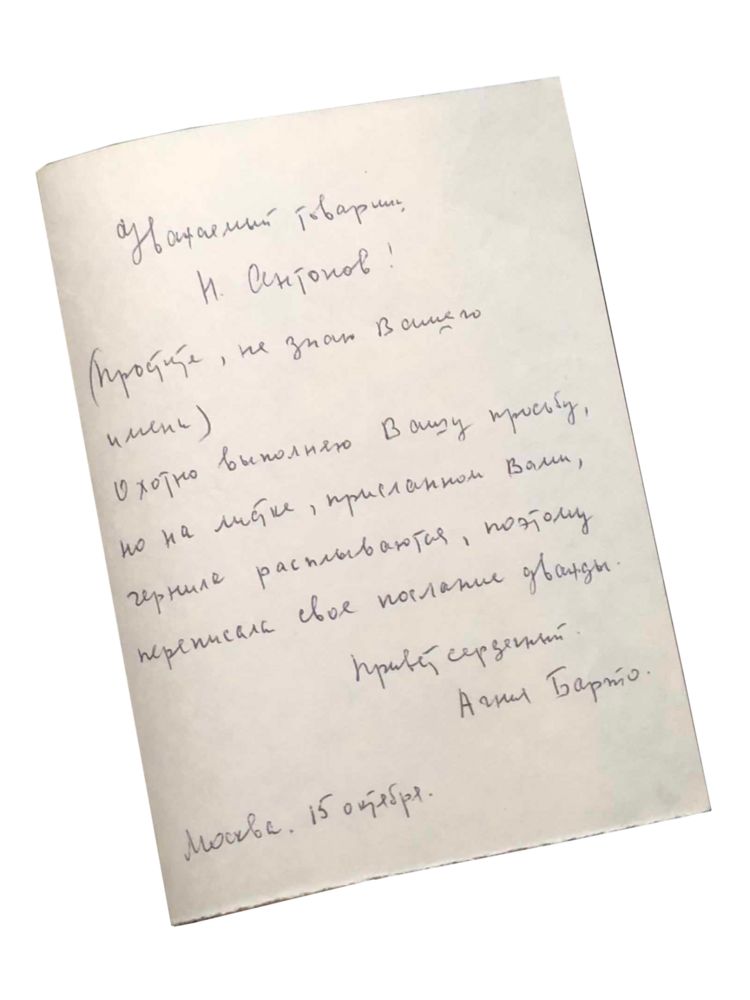 Уважаемый товарищ
Н. Антонов!
(простите, не знаю Вашего
имени)
Охотно выполняю Вашу просьбу,
но на листке, присланном Вами,
чернила расплываются, поэтому
переписала свое послание дважды.
Привет сердечный.
Агния Барто.
Москва. 15 октября.